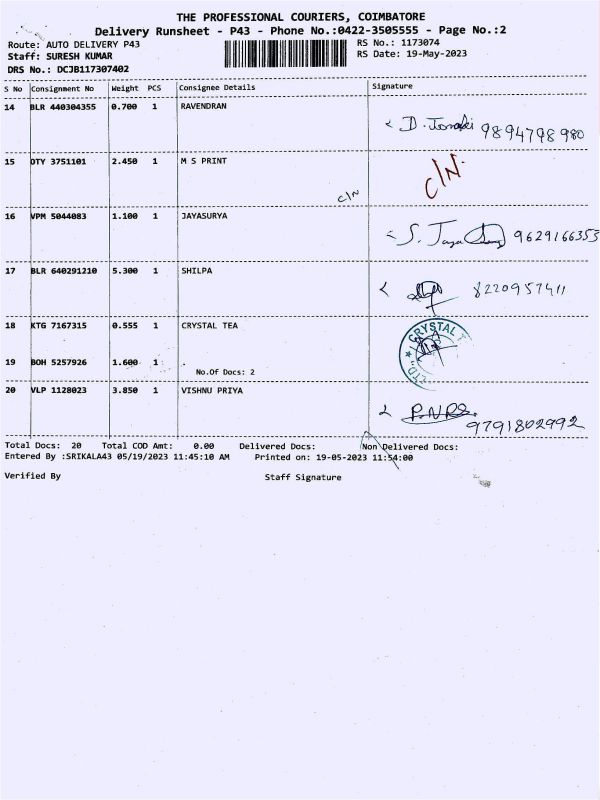 THE PROFESSIONAL COURIERS, COIMBATORE
Delivery Runsheet - P43 - Phone No.:0422-3505555 - Page No.:2
Route: AUTO DELIVERY P43 RS No.: 1173074
Staff: SURESH KUMAR RS Date: 19-May-2023
DRS No.: DCJB117307402
S No Consignment No Weight PCS Consignee Details Signature
14 BLR 440304355 0.700 1 RAVENDRAN
9894798980
15 OTY 3751101 2.450 1 M S PRINT C/N.
C/N
16 VPM 5044083 1.100 1 JAYASURYA
9629166353
17 BLR 640291210 5.300 1 SHILPA
8220957411
18 KTG 7167315 0.555 1 CRYSTAL TEA CRYSTAL T
LTD.
19 BOH 5257926 1.600 1
No.Of Docs: 2
20 VLP 1128023 3.850 1 VISHNU PRIYA
9791802992
Total Docs: 20 Total COD Amt: 0.00 Delivered Docs: Non Delivered Docs:
Entered By :SRIKALA43 05/19/2023 11:45:10 AM Printed on: 19-05-2023 11:54:00
Verified By Staff Signature